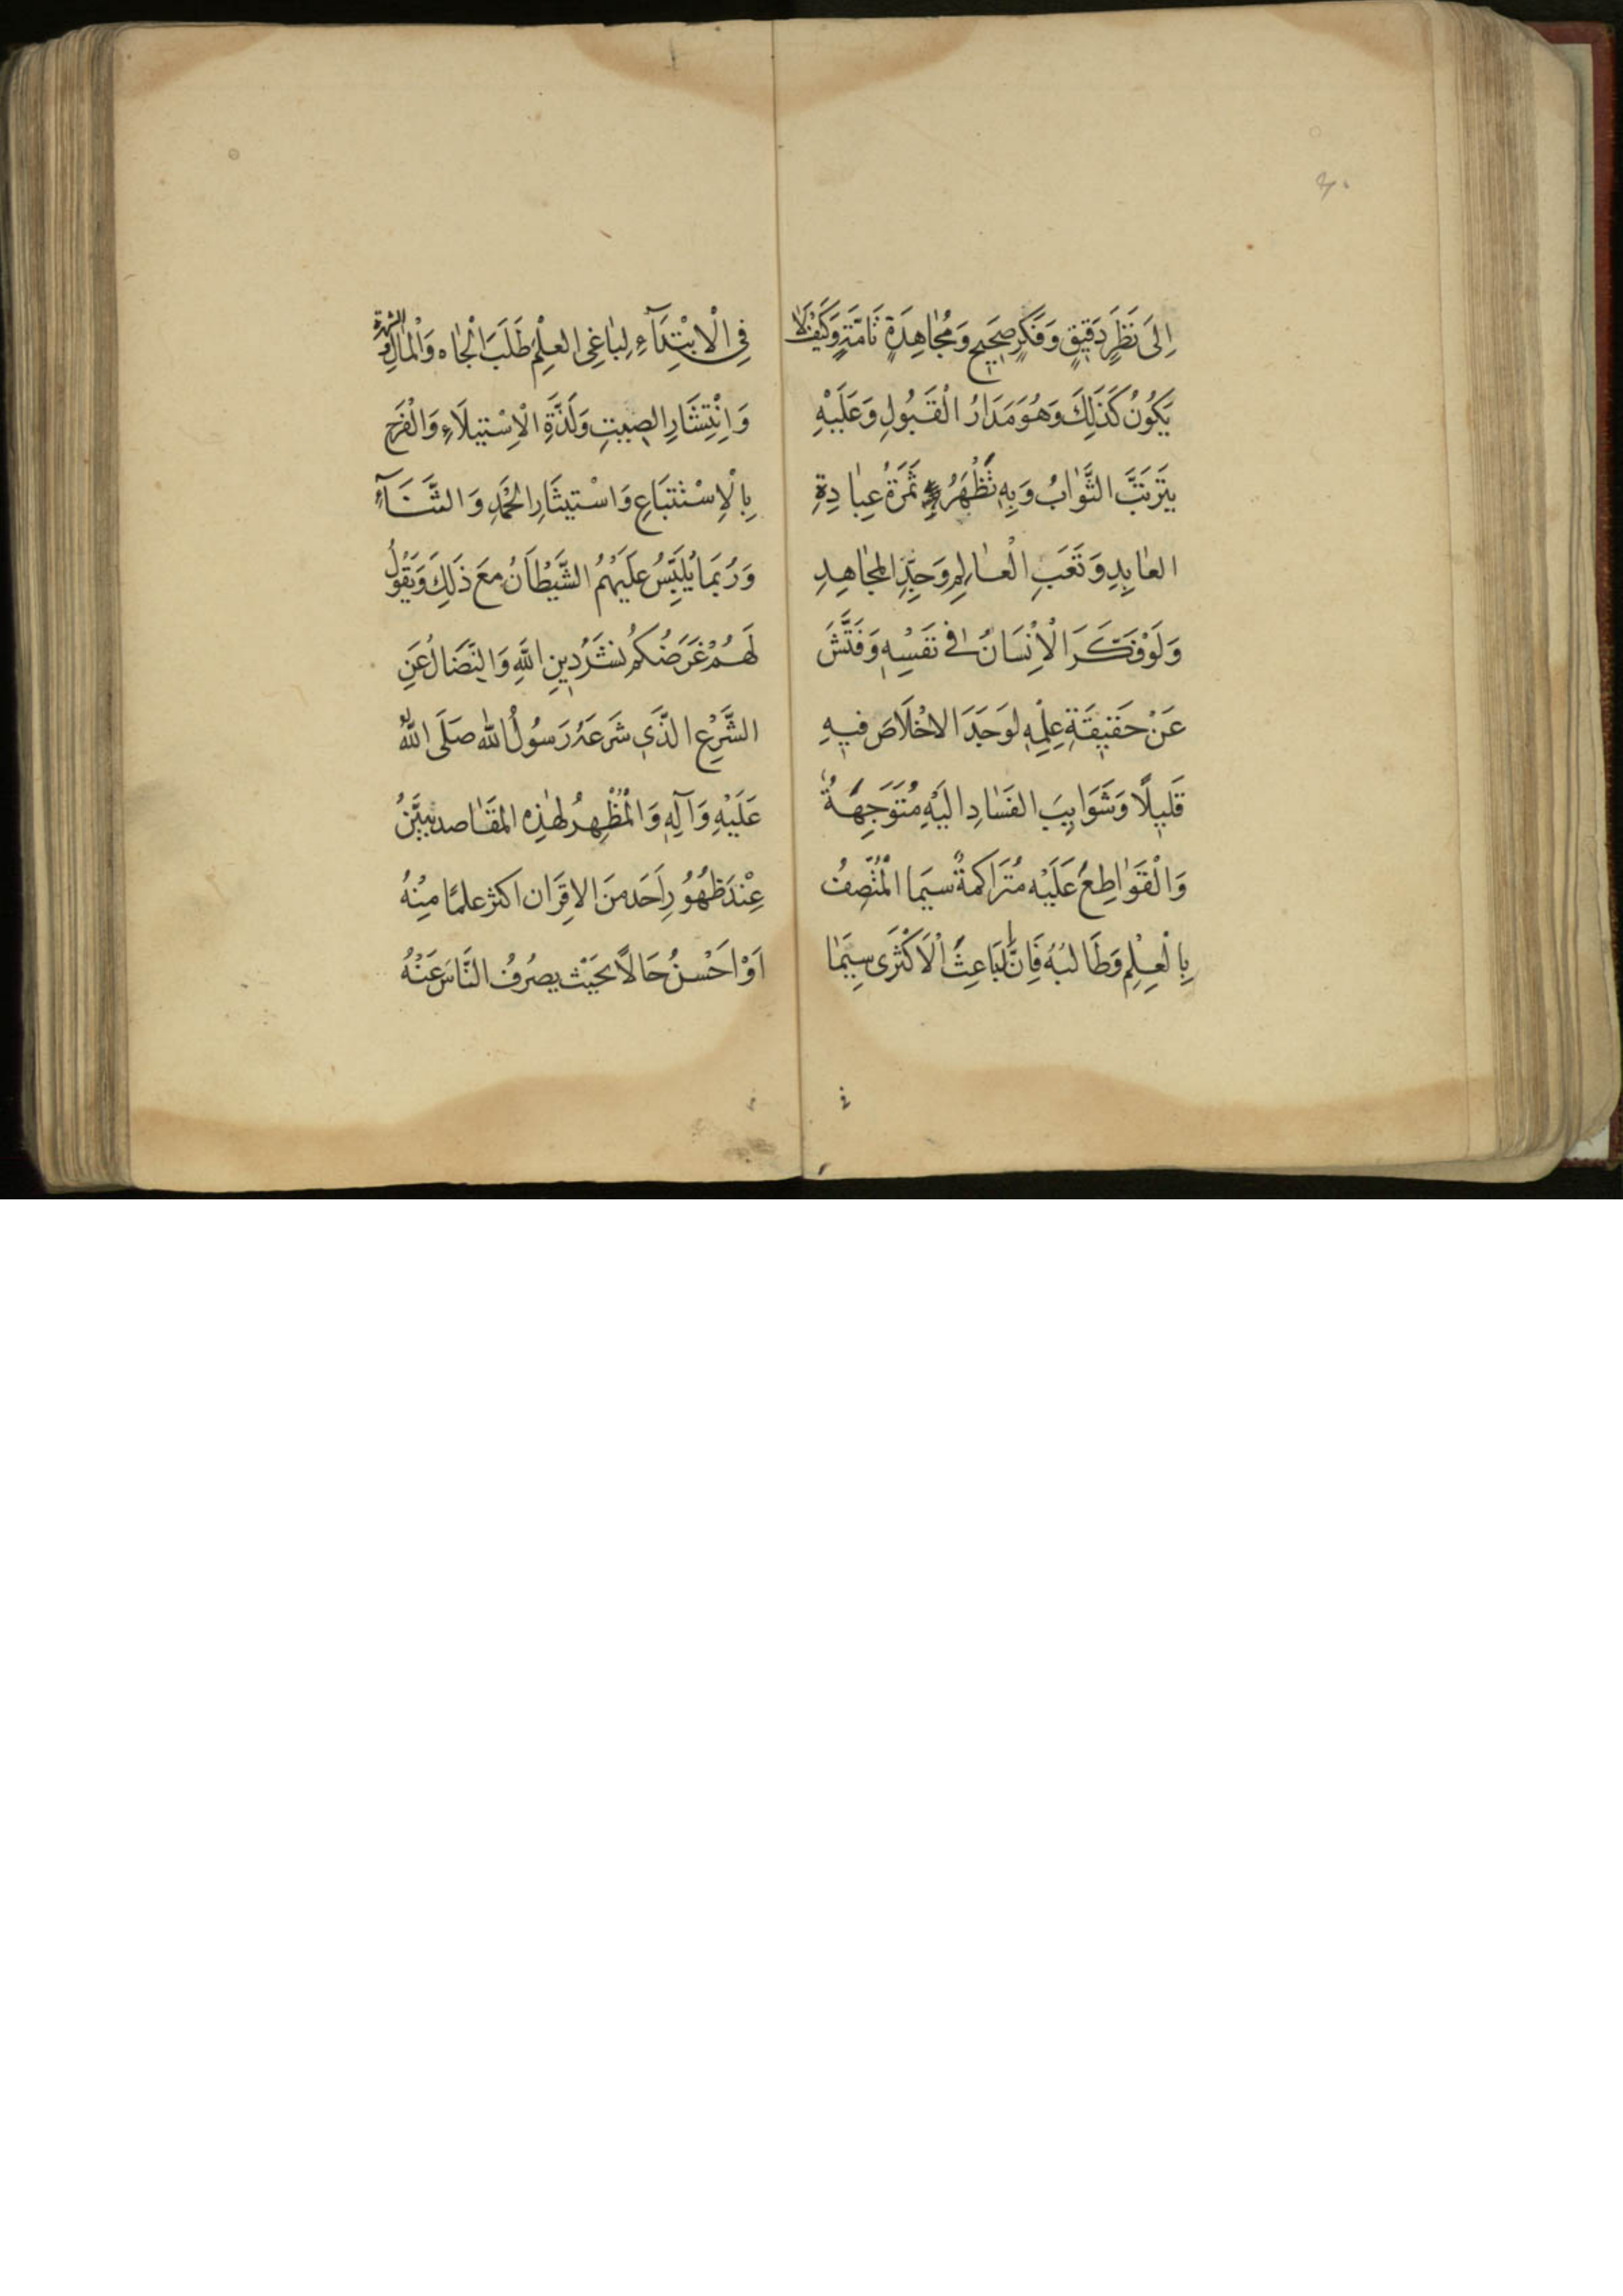 ٤٠
اِلَى نَظَرٍ دَقِيقٍ وَفِكْرٍ صَحِيحٍ وَمُجَاهِدَةٍ تَامَّةٍ وَكَيْفَ لَا
يَكُونُ كَذَلِكَ وَهُوَ مَدَارُ الْقَبُولِ وَعَلَيْهِ
يَتَرَتَّبُ الثَّوَابُ وَبِهِ تَظْهَرُ ثَمَرَةُ عِبَادَةِ
العَابِدِ وَتَعَبِ الْعَالِمِ وَجِدِّ المُجَاهِدِ
وَلَوْ فَكَّرَ الْاِنْسَانُ فِي نَفْسِهِ وَفَتَّشَ
عَنْ حَقِيقَةِ عِلْمِهِ لَوَجَدَ الاخْلَاصَ فِيهِ
قَلِيلًا وَشَوَايِبَ الفَسَادِ اِلَيْهِ مُتَوَجِّهَةً
وَالْقَوَاطِعُ عَلَيْهِ مُتَرَاكِمَةٌ سِيَمَا الْمُتَّصِفُ
بِالْعِلْمِ وَطَالِبُهُ فَاِنَّ البَاعِثَ الْاَكْثَرِى سِيَمَا
فِي الْاِبْتِدَآءِ لِبَاغِي العِلْمِ طَلَبَ الْجَاهِ وَالْمَالِ وَالشهرة
وَاِنْتِشَارِ الصِيتِ وَلَذَّةِ الْاِسْتِيلَاءِ وَالْفَرَحِ
بِالْاِسْتِتْبَاعِ وَاسْتِيثَارِ الحَمْدِ وَالثَّنَآءِ
وَرُبَمَا يُلَبِّسُ عَلَيْهِمُ الشَّيْطَانُ مَعَ ذَلِكَ وَيَقُولُ
لَهُمْ غَرَضُكُمْ نَشْرُ دِينِ اللّهِ وَالنِّضَالُ عَنِ
الشَّرْعِ الَّذِي شَرَعَهُ رَسُولُ اللّه صَلَى اللّهُ
عَلَيْهِ وَآلِهِ وَالْمُظْهِرُ لِهٰذِهِ المَقَاصد يتبَيَّنُ
عِنْدَ ظُهُورِ اَحَد مِنَ الاقرَان اكثر علمًا مِنْهُ
اَوْ اَحْسَنُ حَالًا بحَيْث يصْرُفُ النَّاسَ عَنْهُ